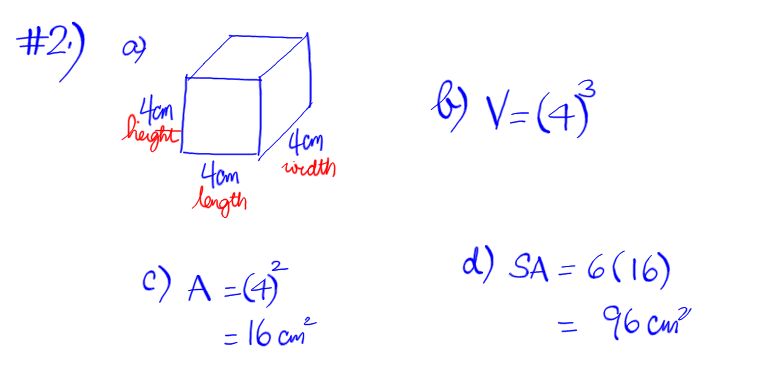 #2.) a)
4cm
height
4cm
width
4cm
length
b) V=(4)³
c) A =(4)²
= 16 cm²
d) SA = 6(16)
= 96 cm²